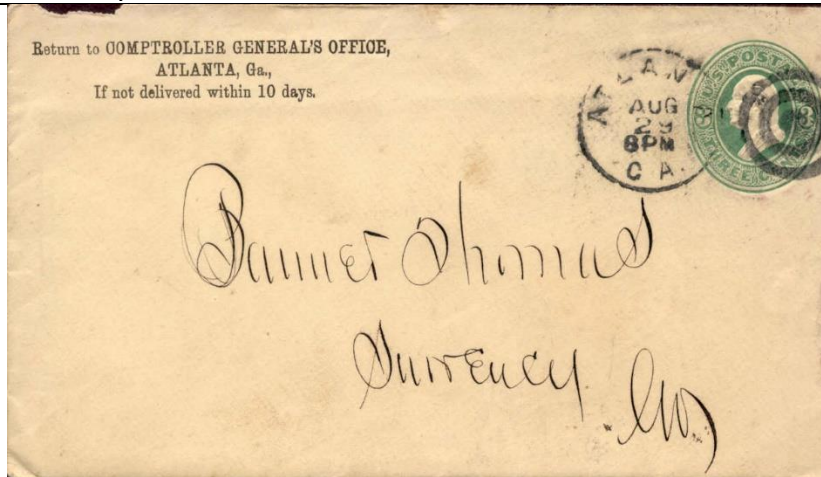 Return to COMPTROLLER GENERAL'S OFFICE,
ATLANTA, Ga.,
If not delivered within 10 days.
ATLAN
AUG
29
8PM
GA
U.S. POST
3
3
THREE C
Banner Thomas
Surrency.
Ga.